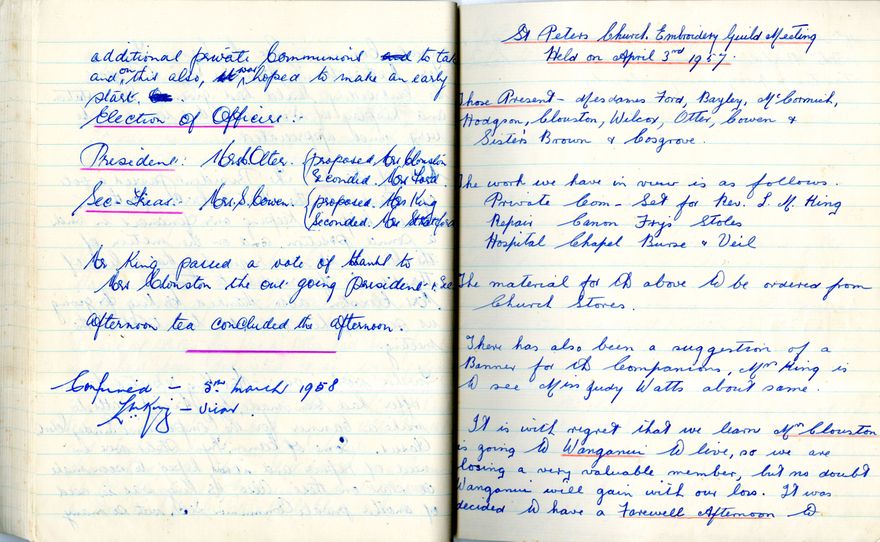 additional private Communions to take
and on this also, it was hoped to make an early
start.
Election of Officers:-
President: Mrs Otter. (proposed. Mrs Clouston
Seconded. Mrs Ford.
Sec-Treas. Mrs. S. Cowen. (proposed. Mr King
(seconded. Mrs
Mr King passed a vote of thanks to
Mrs Clouston the out going president &
Afternoon tea concluded the afternoon.
Confirmed - 3rd March 1958
LmKing - Vicar.
St Peters Church Embroidery Guild Meeting
Held on April 3rd 1957.
Those Present - Mesdames Ford, Bayley, McCormich,
Hodgson, Clouston, Welcox, Otter, Cowen &
Sisters Brown & Cosgrove.
The work we have in view is as follows.
Private Com - Set for Rev. L. M. King
Repair Canon Frys Stoles
Hospital Chapel Burse & Veil
The material for th above to be ordered from
Church Stores.
There has also been a suggestion of a
Banner for th Companions, Mrs King is
to see Miss Judy Watts about same.
It is with regret that we learn Mrs Clouston
is going to Wanganui to live, so we are
losing a very valuable member, but no doubt
Wanganui will gain with our loss. It was
decided to have a Farewell Afternoon to